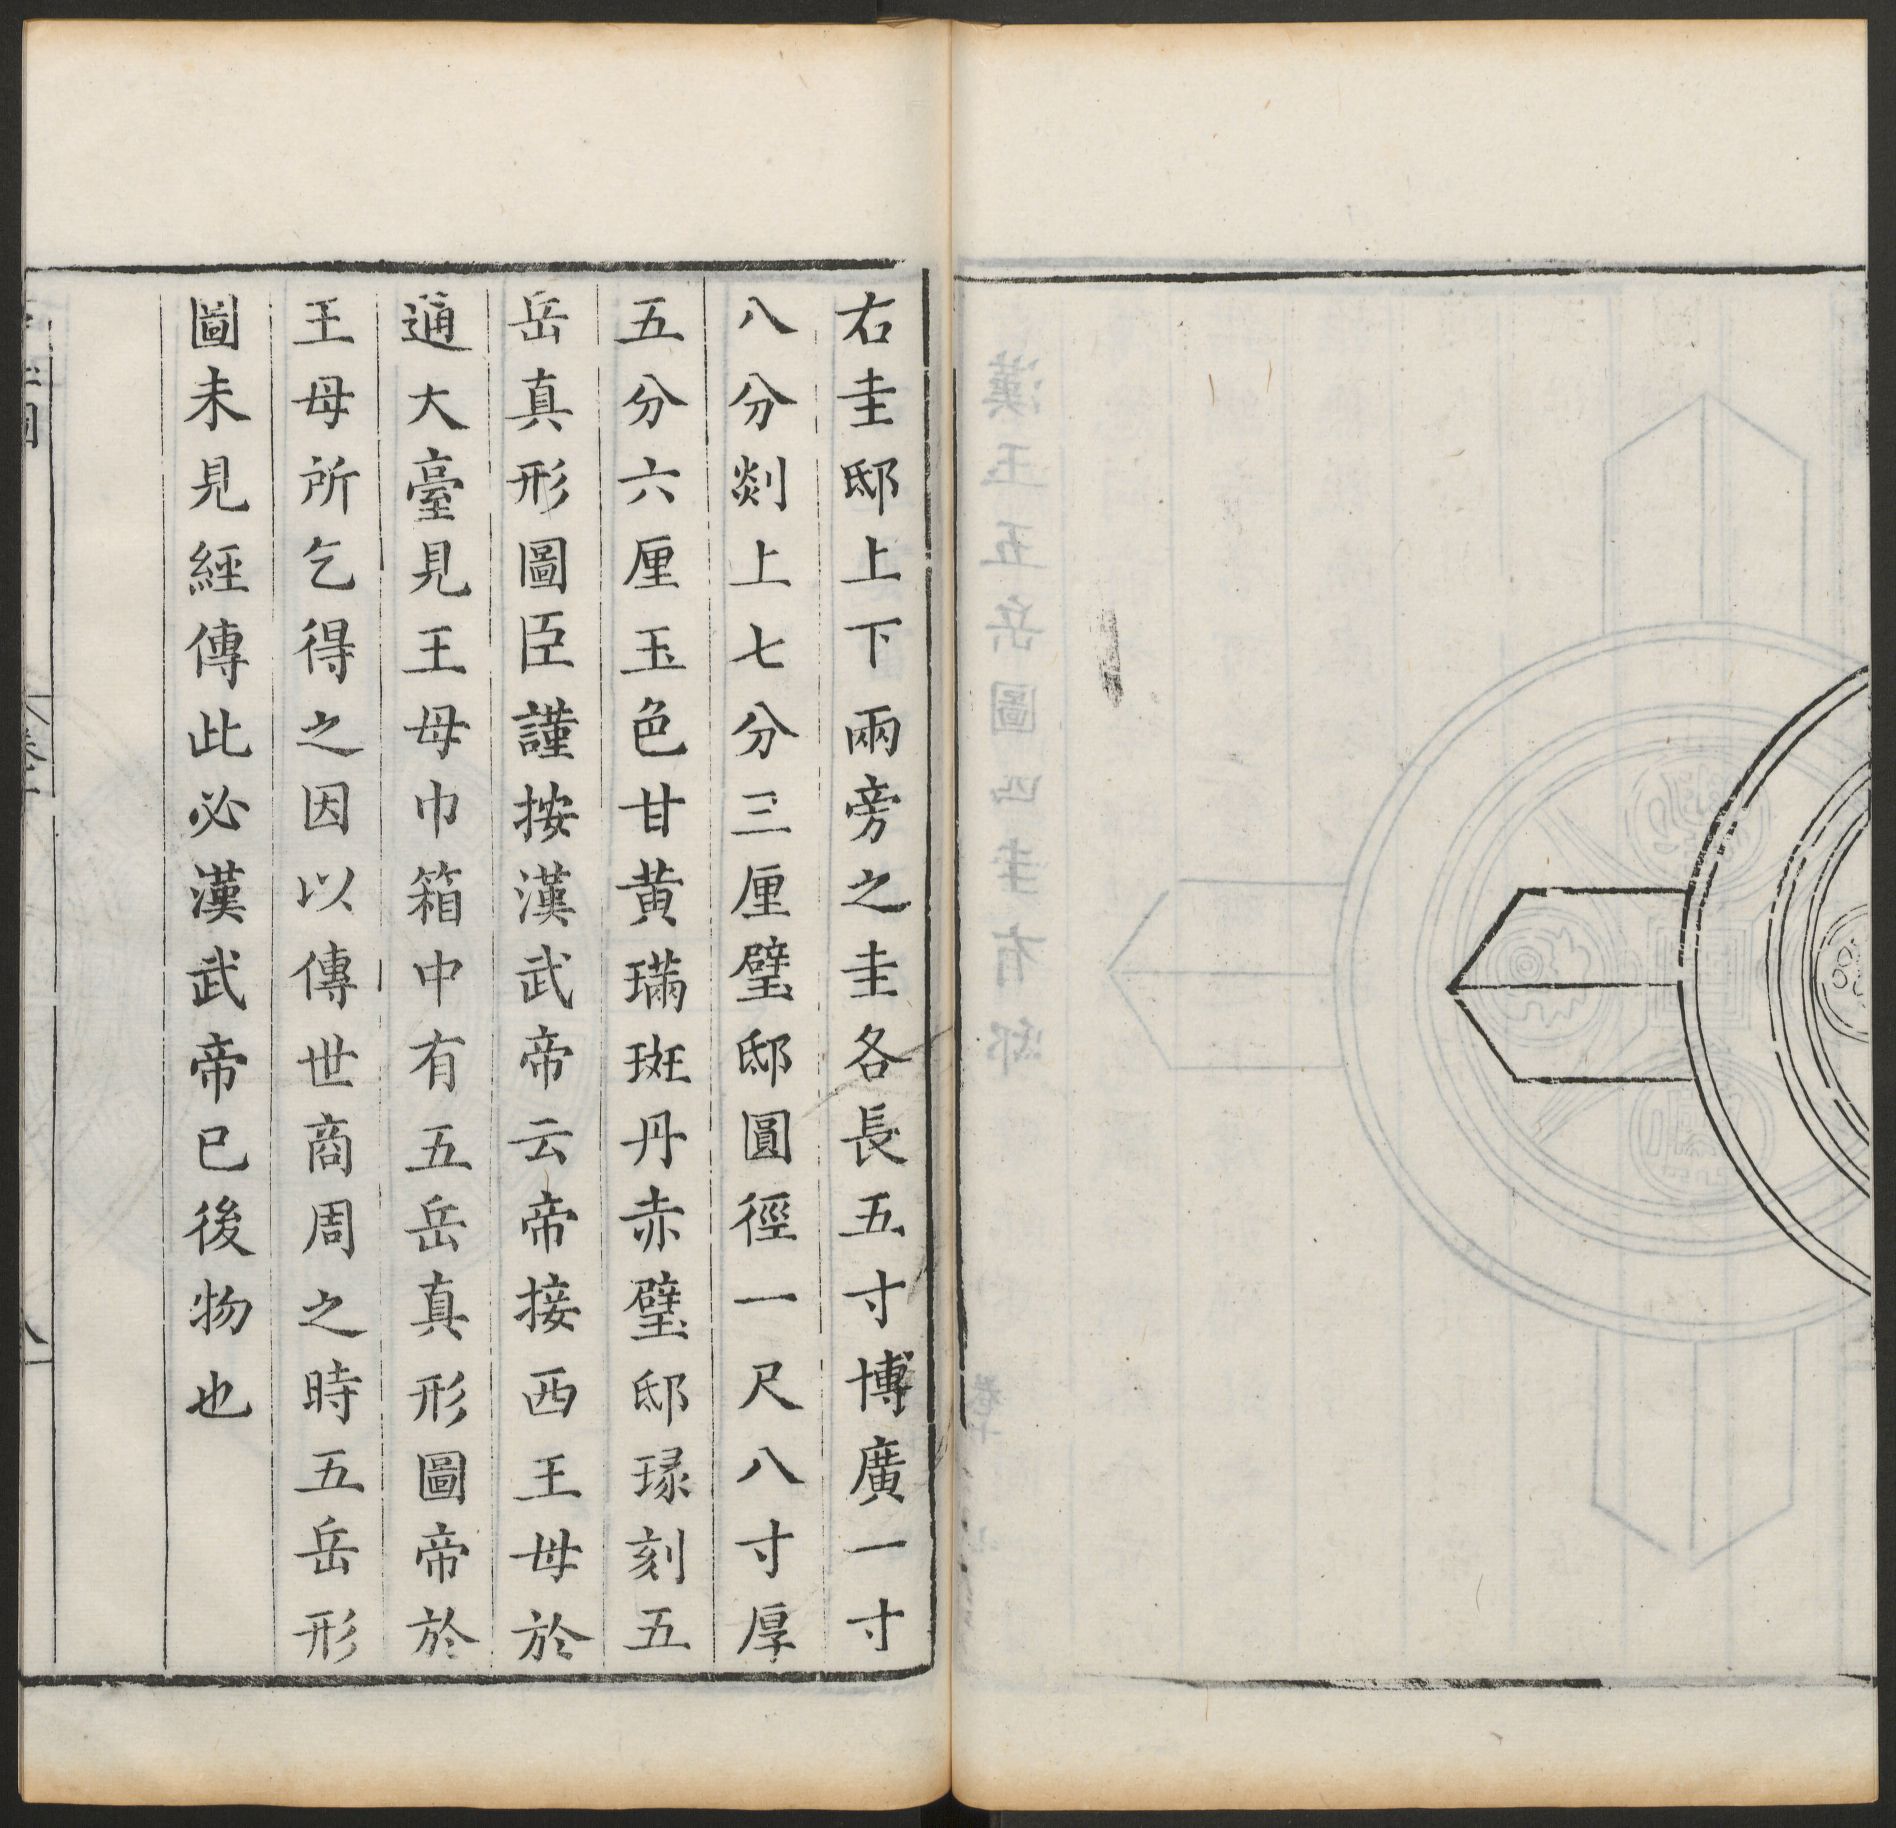 右圭邸上下兩旁之圭各長五寸博廣一寸
八分剡上七分三厘璧邸圓徑一尺八寸厚
五分六厘玉色甘黄璊斑丹赤璧邸瑑刻五
岳真形圖臣謹按漢武帝云帝接西王母於
通大臺見王母巾箱中有五岳真形圖帝於
王母所乞得之因以傳世商周之時五岳形
圖未見經傳此必漢武帝已後物也